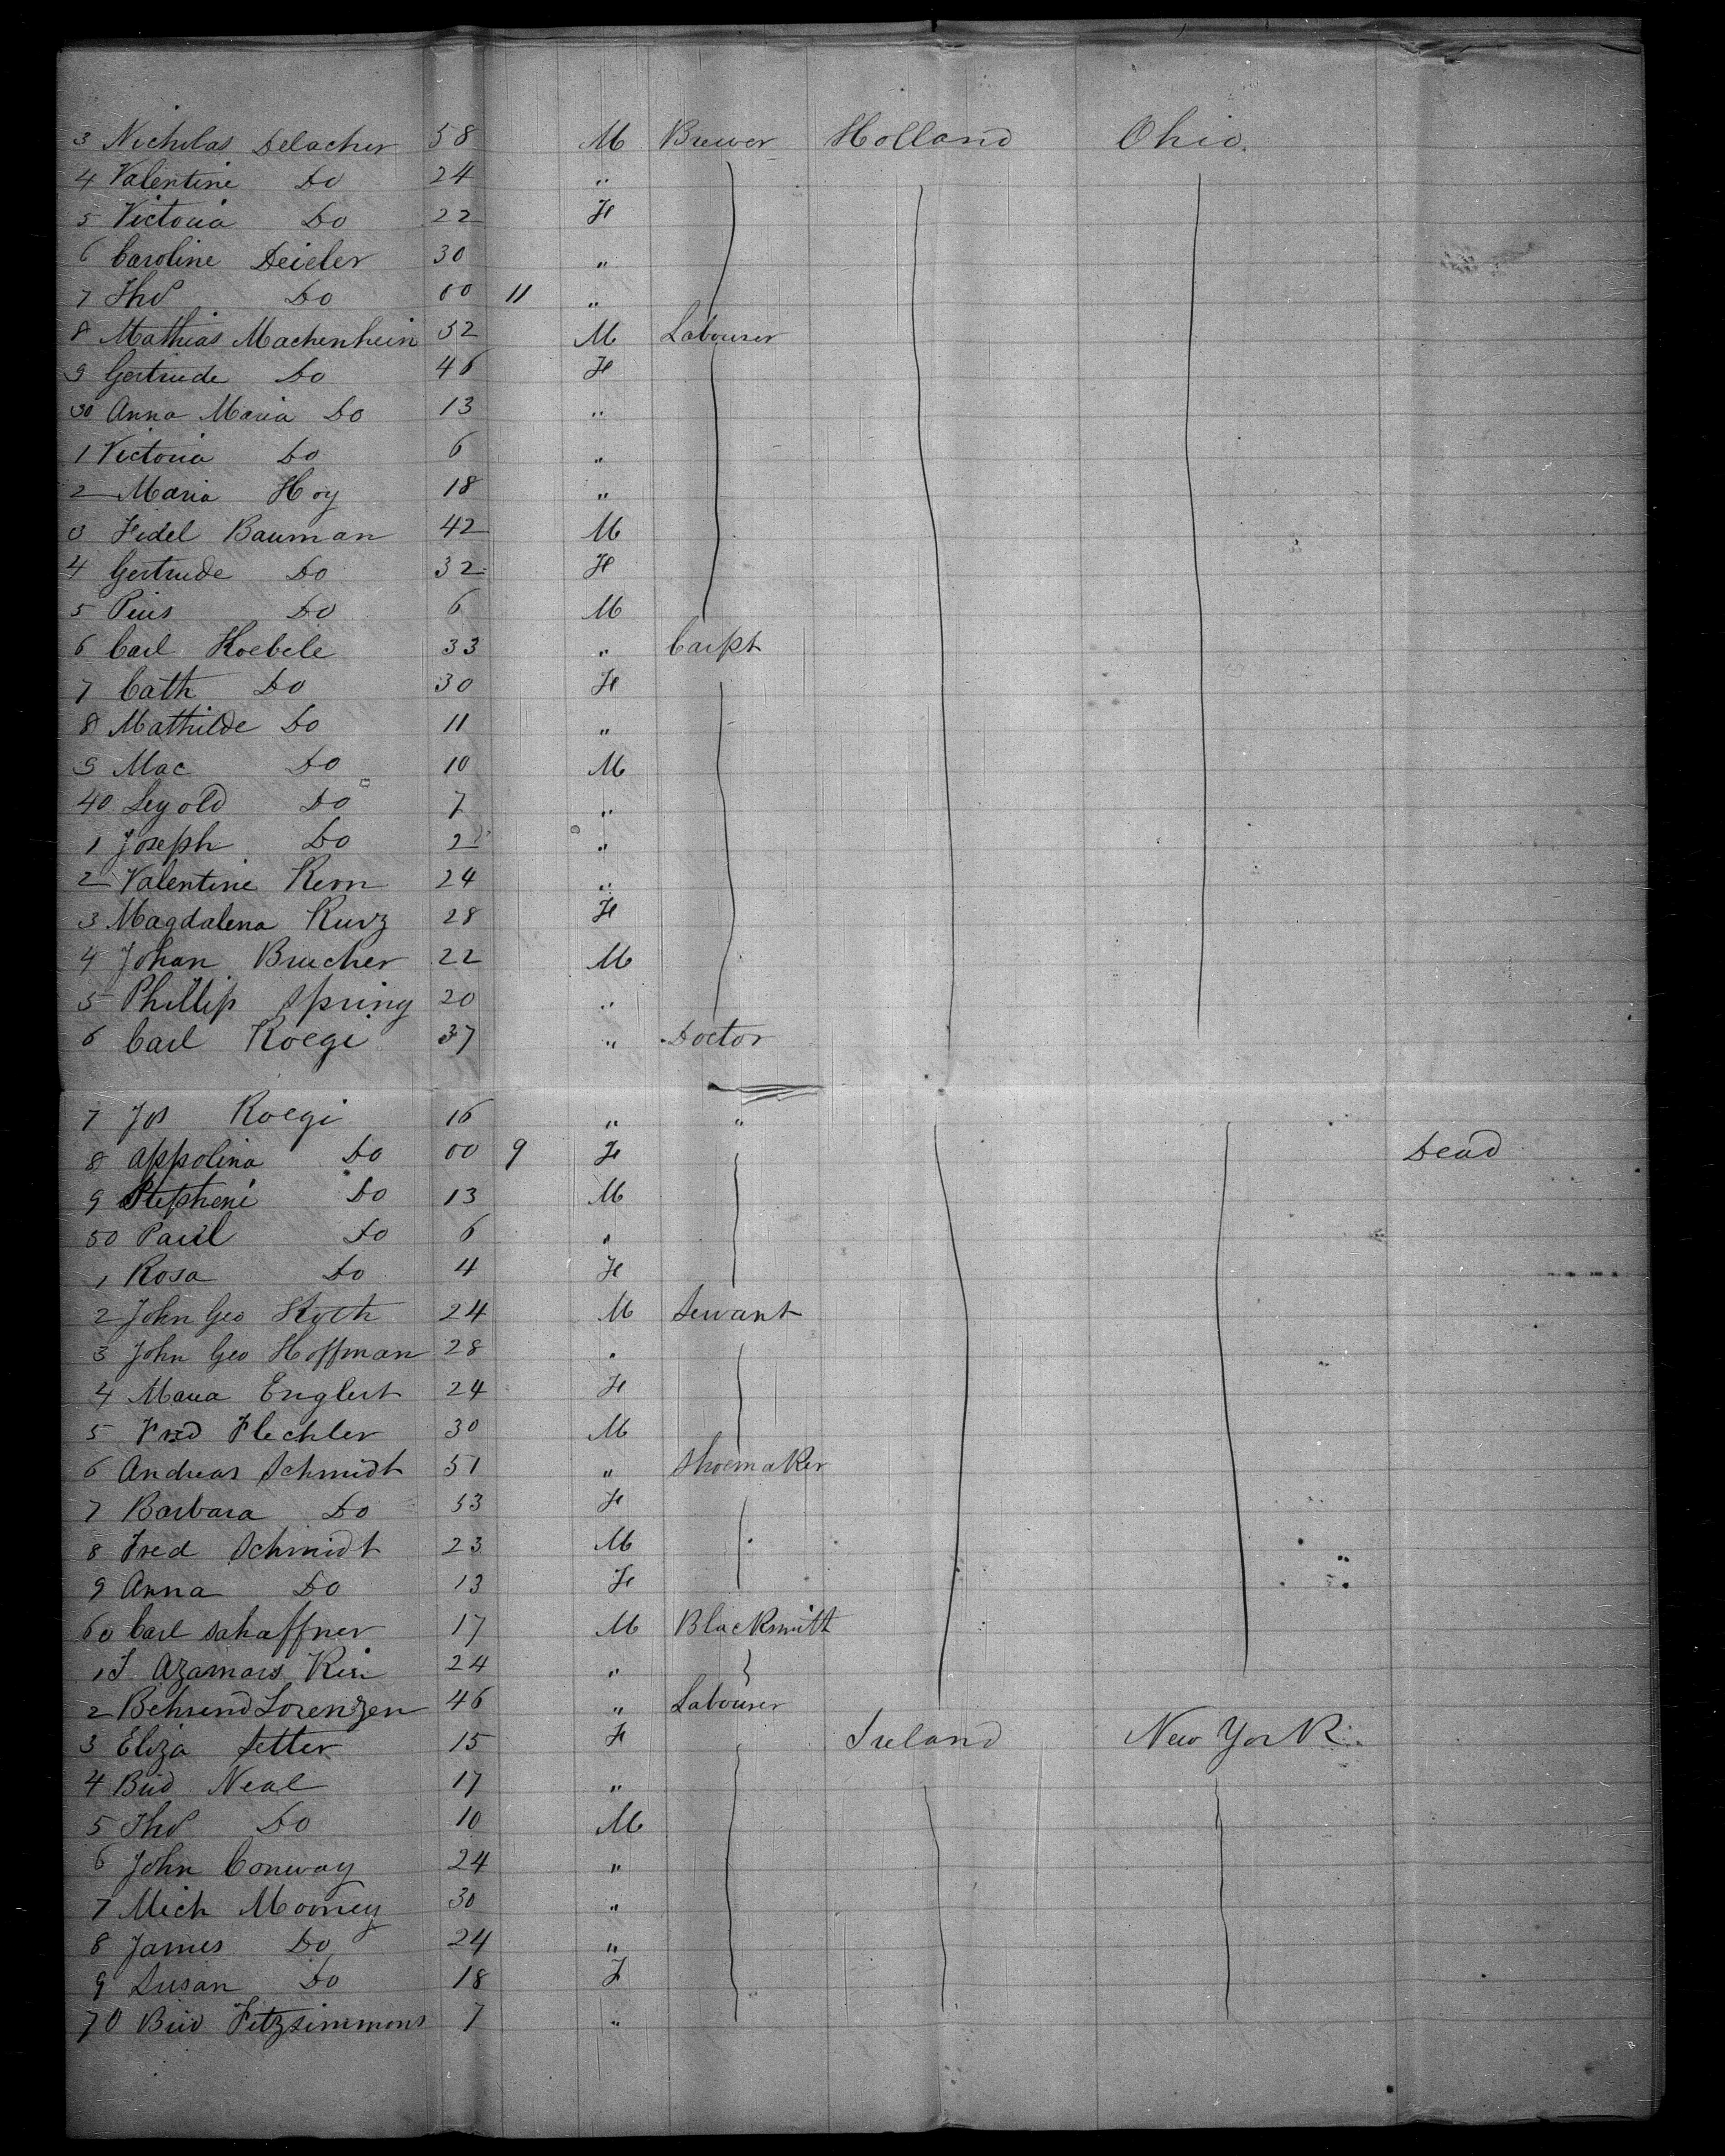 3 Nicholas Delacher 58 M Brewer Holland Ohio.
4 Valentine Do 24 "
5 Victoria Do 22 F
6 Caroline Deieler 30 "
7 Tho Do 00 11 "
8 Mathias Machenhein 52 M Labourer
9 Gertrude Do 46 F
30 Anna Maria Do 13 "
1 Victoria Do 6 "
2 Maria Hoy 18 "
3 Fidel Bauman 42 M
4 Gertrude Do 32 F
5 Pius Do 6 M
6 Carl Koebele 33 " Carpt
7 Cath Do 30 F
8 Mathilde Do 11 "
9 Mac Do 10 M
40 Leyold Do 7 "
1 Joseph Do 2 "
2 Valentine Kern 24 "
3 Magdalena Kurz 28 F
4 Johan Brucher 22 M
5 Phillip Spring 20 "
6 Carl Roegi 37 " Doctor
7 Jos Roegi 16 " "
8 Appolina Do 00 9 F Dead
9 Stepheni Do 13 M
50 Paul Do 6 "
1 Rosa Do 4 F
2 John Geo 24 M Servant
3 John Geo Hoffman 28 "
4 Maria Englert 24 F
5 Fred Flechler 30 M
6 Andreas Schmidt 51 " Shoemaker
7 Barbara Do 53 F
8 Fred Schmidt 23 M
9 Anna Do 13 F
60 Carl Schaffner 17 M Blacksmith
1 24 "
2 Behrend Lorenzen 46 " Labourer
3 Eliza Setter 15 F Ireland New York
4 Brid Neal 17 "
5 Tho Do 10 M
6 John Conway 24 "
7 Mich Mooney 30 "
8 James Do 24 "
9 Susan Do 18 F
70 Brid Fitzsimmons 7 "